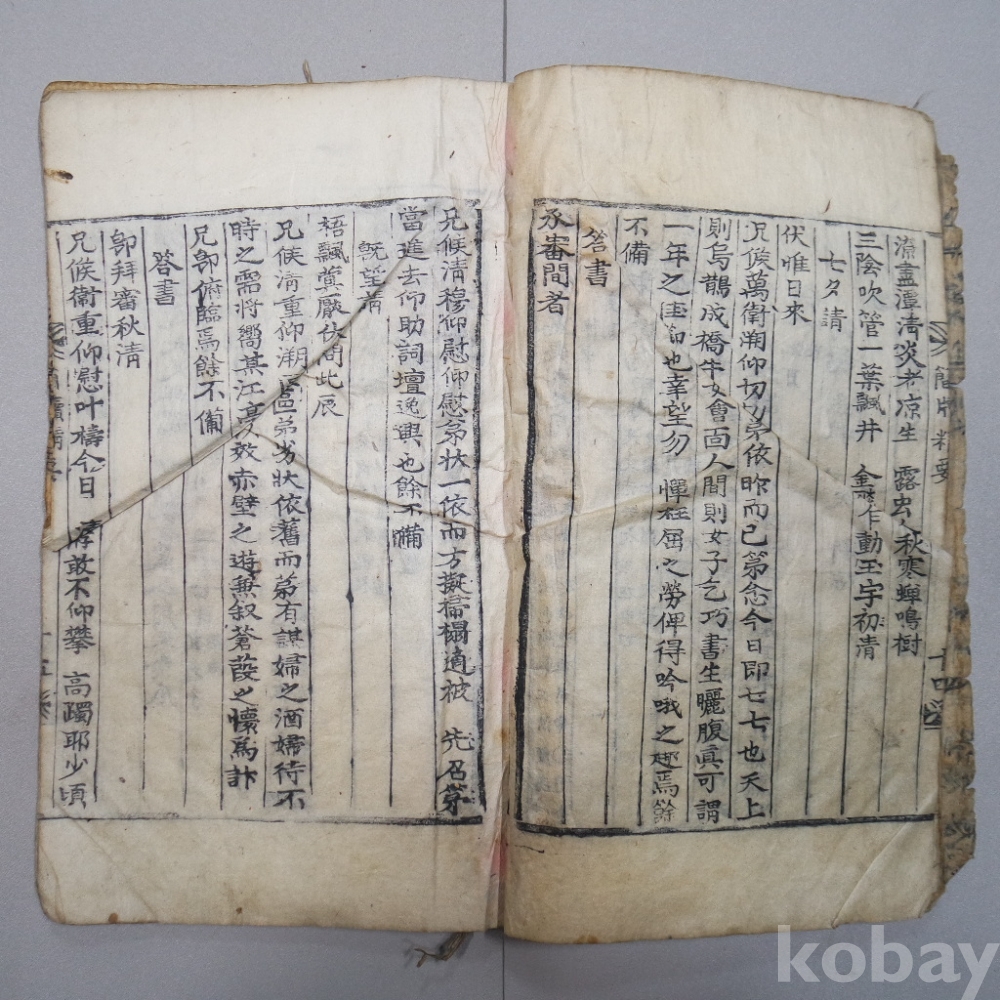 流盡潭淸炎老凉生 露虫秋寒蟬鳴樹
三陰吹管一葉飄井 金乍動玉宇初清
七夕請
伏惟日來
兄候萬衛溯仰切切弟依昨而已第念今日即七七也天上
則烏鵲成橋牛女會面人間則女子乞巧書生曬腹眞可謂
一年之佳節也幸望勿 憚枉屈之勞俾得吟哦之趣焉餘
不備
答書
承審間者
簡牘精要
十四
兄候淸穆仰慰仰慰弟狀一依而方擬掃榻適被 先召莫
當進去仰助詞壇逸興也餘不備
旣望請
梧飄蓂厥伏問此辰
兄候淸重仰溯區區弟劣狀依舊而弟有謀婦之酒婦待不
時之需將嚮某江亭又效赤壁之遊兼叙蒼葭之懷爲計
兄卽俯臨焉餘不備
答書
卽拜審秋淸
兄候衛重仰慰叶禱今日 敢不仰攀 高躅耶少頃
簡牘精要
十五
kobay